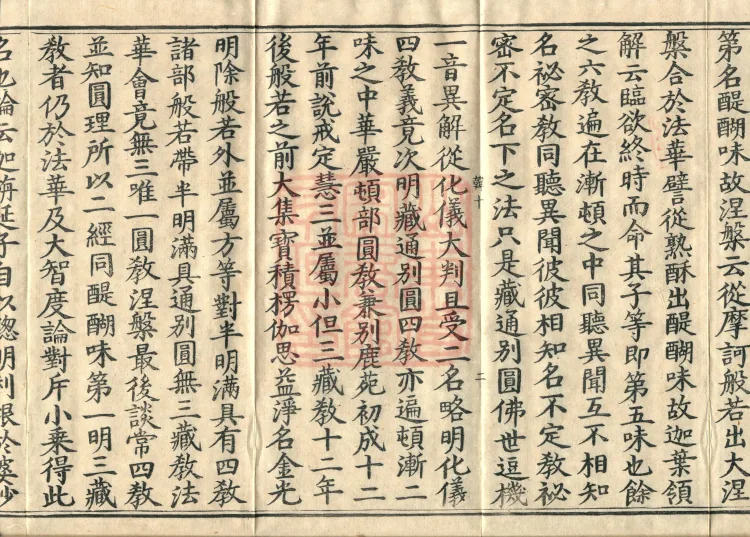 第名醍醐味故涅槃云從摩訶般若出大涅
槃合於法華譬從熟酥出醍醐味故迦葉領
解云臨欲終時而命其子等即第五味也餘
之六教遍在漸頓之中同聽異聞互不相知
名祕密教同聽異聞彼彼相知名不定教祕
密不定名下之法只是藏通別圓佛世逗機
一音異解從化儀大判且受二名略明化儀
四教義竟次明藏通別圓四教亦遍頓漸二
味之中華嚴頓部圓教兼別鹿苑初成十二
年前說戒定慧三並屬小但三藏教十二年
後般若之前大集寶積楞伽思益淨名金光
明除般若外並屬方等對半明滿具有四教
諸部般若帶半明滿具通別圓無三藏教法
華會竟無三唯一圓教涅槃最後談常四教
並知圓理所以二經同醍醐味第一明三藏
教者仍於法華及大智度論對斥小乘得此
名也論云迦旃延子自以聰明利根於婆沙